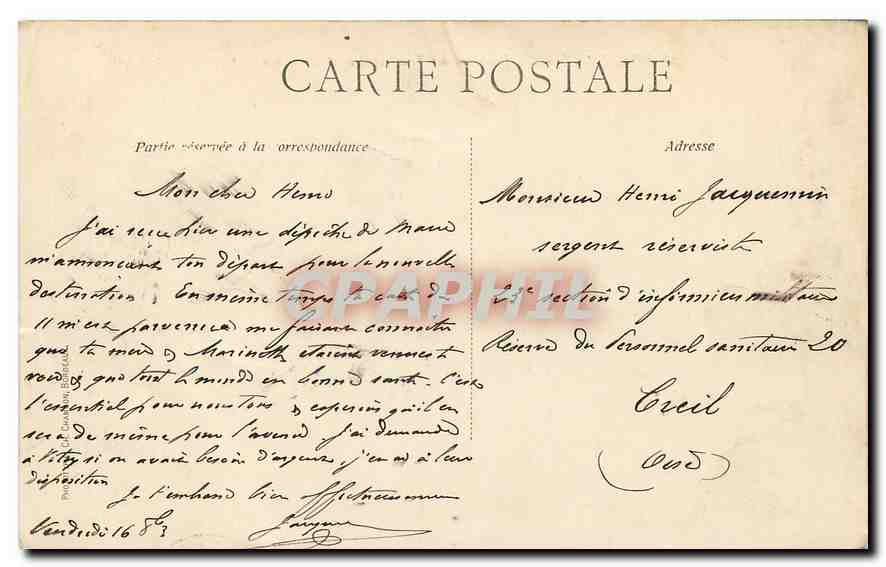 CARTE POSTALE
Partie réservée à la correspondance
Adresse
Mon cher Henri
J'ai reçu hier une dépêche de Marie
m'annonçant ton départ pour la nouvelle
destination. En même temps ta carte du
11 m'est parvenue me faisant connaître
que ta mère & Marinette étaient venues te
voir & que tout le monde en bonne santé. C'est
l'essentiel pour nous tous & espérons qu'il en
sera de même pour l'avenir. J'ai demandé
à Vitry si on avait besoin d'argent, j'en ai à leur
disposition
Je t'embrasse bien affectueusement
Jacquemin
Vendredi 16 8bre
Monsieur Henri Jacquemin
sergent réserviste
23e section d'infirmiers militaires
Réserve du Personnel sanitaire 20
Creil
(Oise)
PHOTOTYPIE CH. CHAMBON, BORDEAUX
CPAPHIL